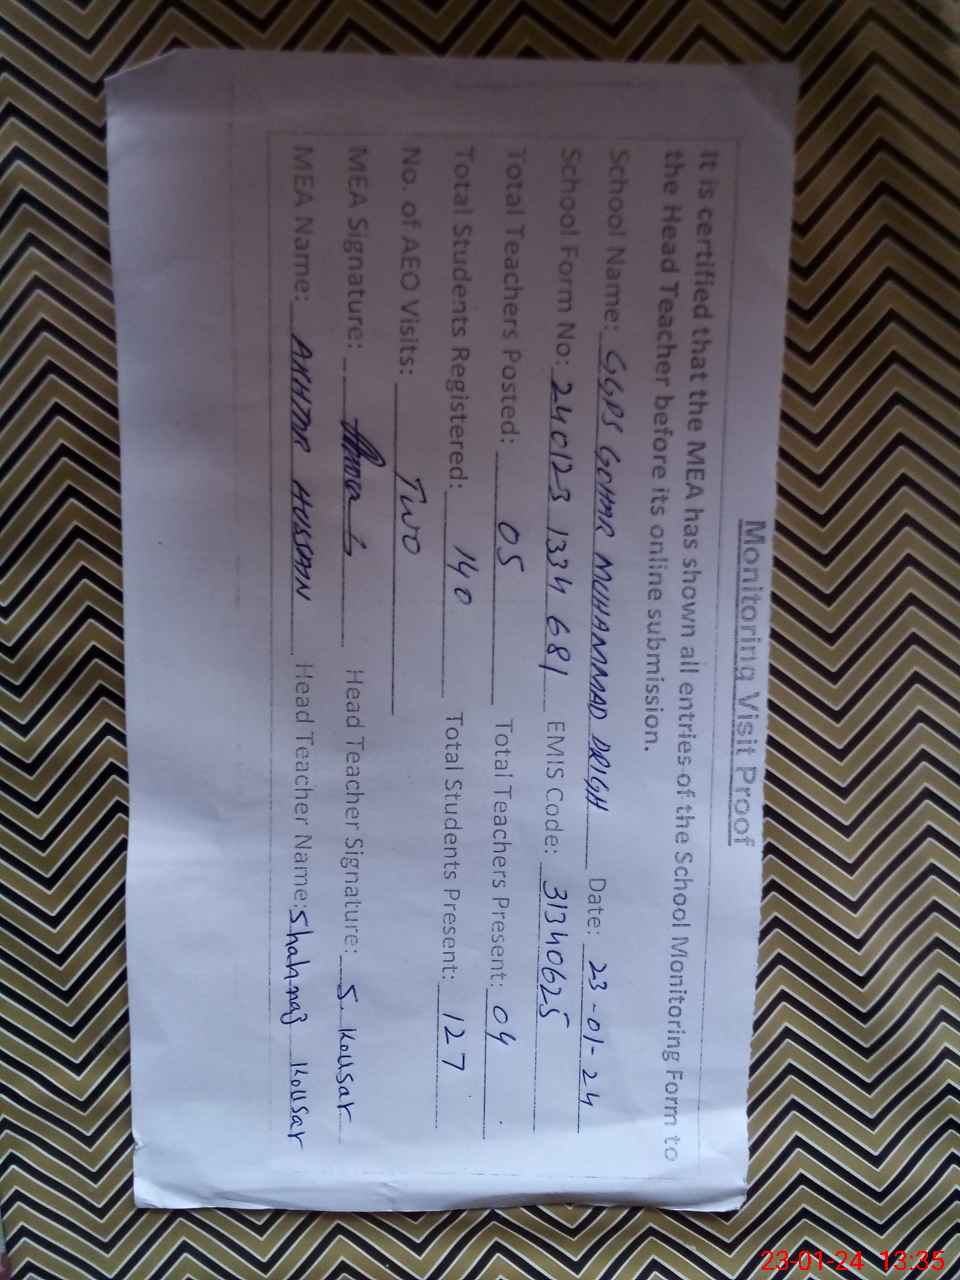 Monitoring Visit Proof
It is certified that the MEA has shown all entries of the School Monitoring Form to
the Head Teacher before its online submission.
School Name: GGPS GOHAR MUHAMMAD DRIGH Date: 23-01-24
School Form No: 240123 1334 681 EMIS Code: 31340625
Total Teachers Posted: 05 Total Teachers Present: 04
Total Students Registered: 140 Total Students Present: 127
No. of AEO Visits: Two
MEA Signature: Head Teacher Signature: S. Kousar
MEA Name: AKHTAR HUSSAIN Head Teacher Name: Shahnaz Kousar
23-01-24 13:35